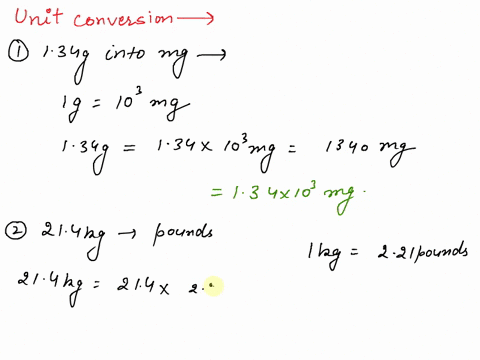 Unit conversion →
① 1.34g into mg →
1g = 10³ mg
1.34g = 1.34 × 10³ mg = 1340 mg
= 1.34×10³ mg.
② 21.4 kg → pounds
1 kg = 2.21 pounds
21.4 kg = 21.4 × 2.